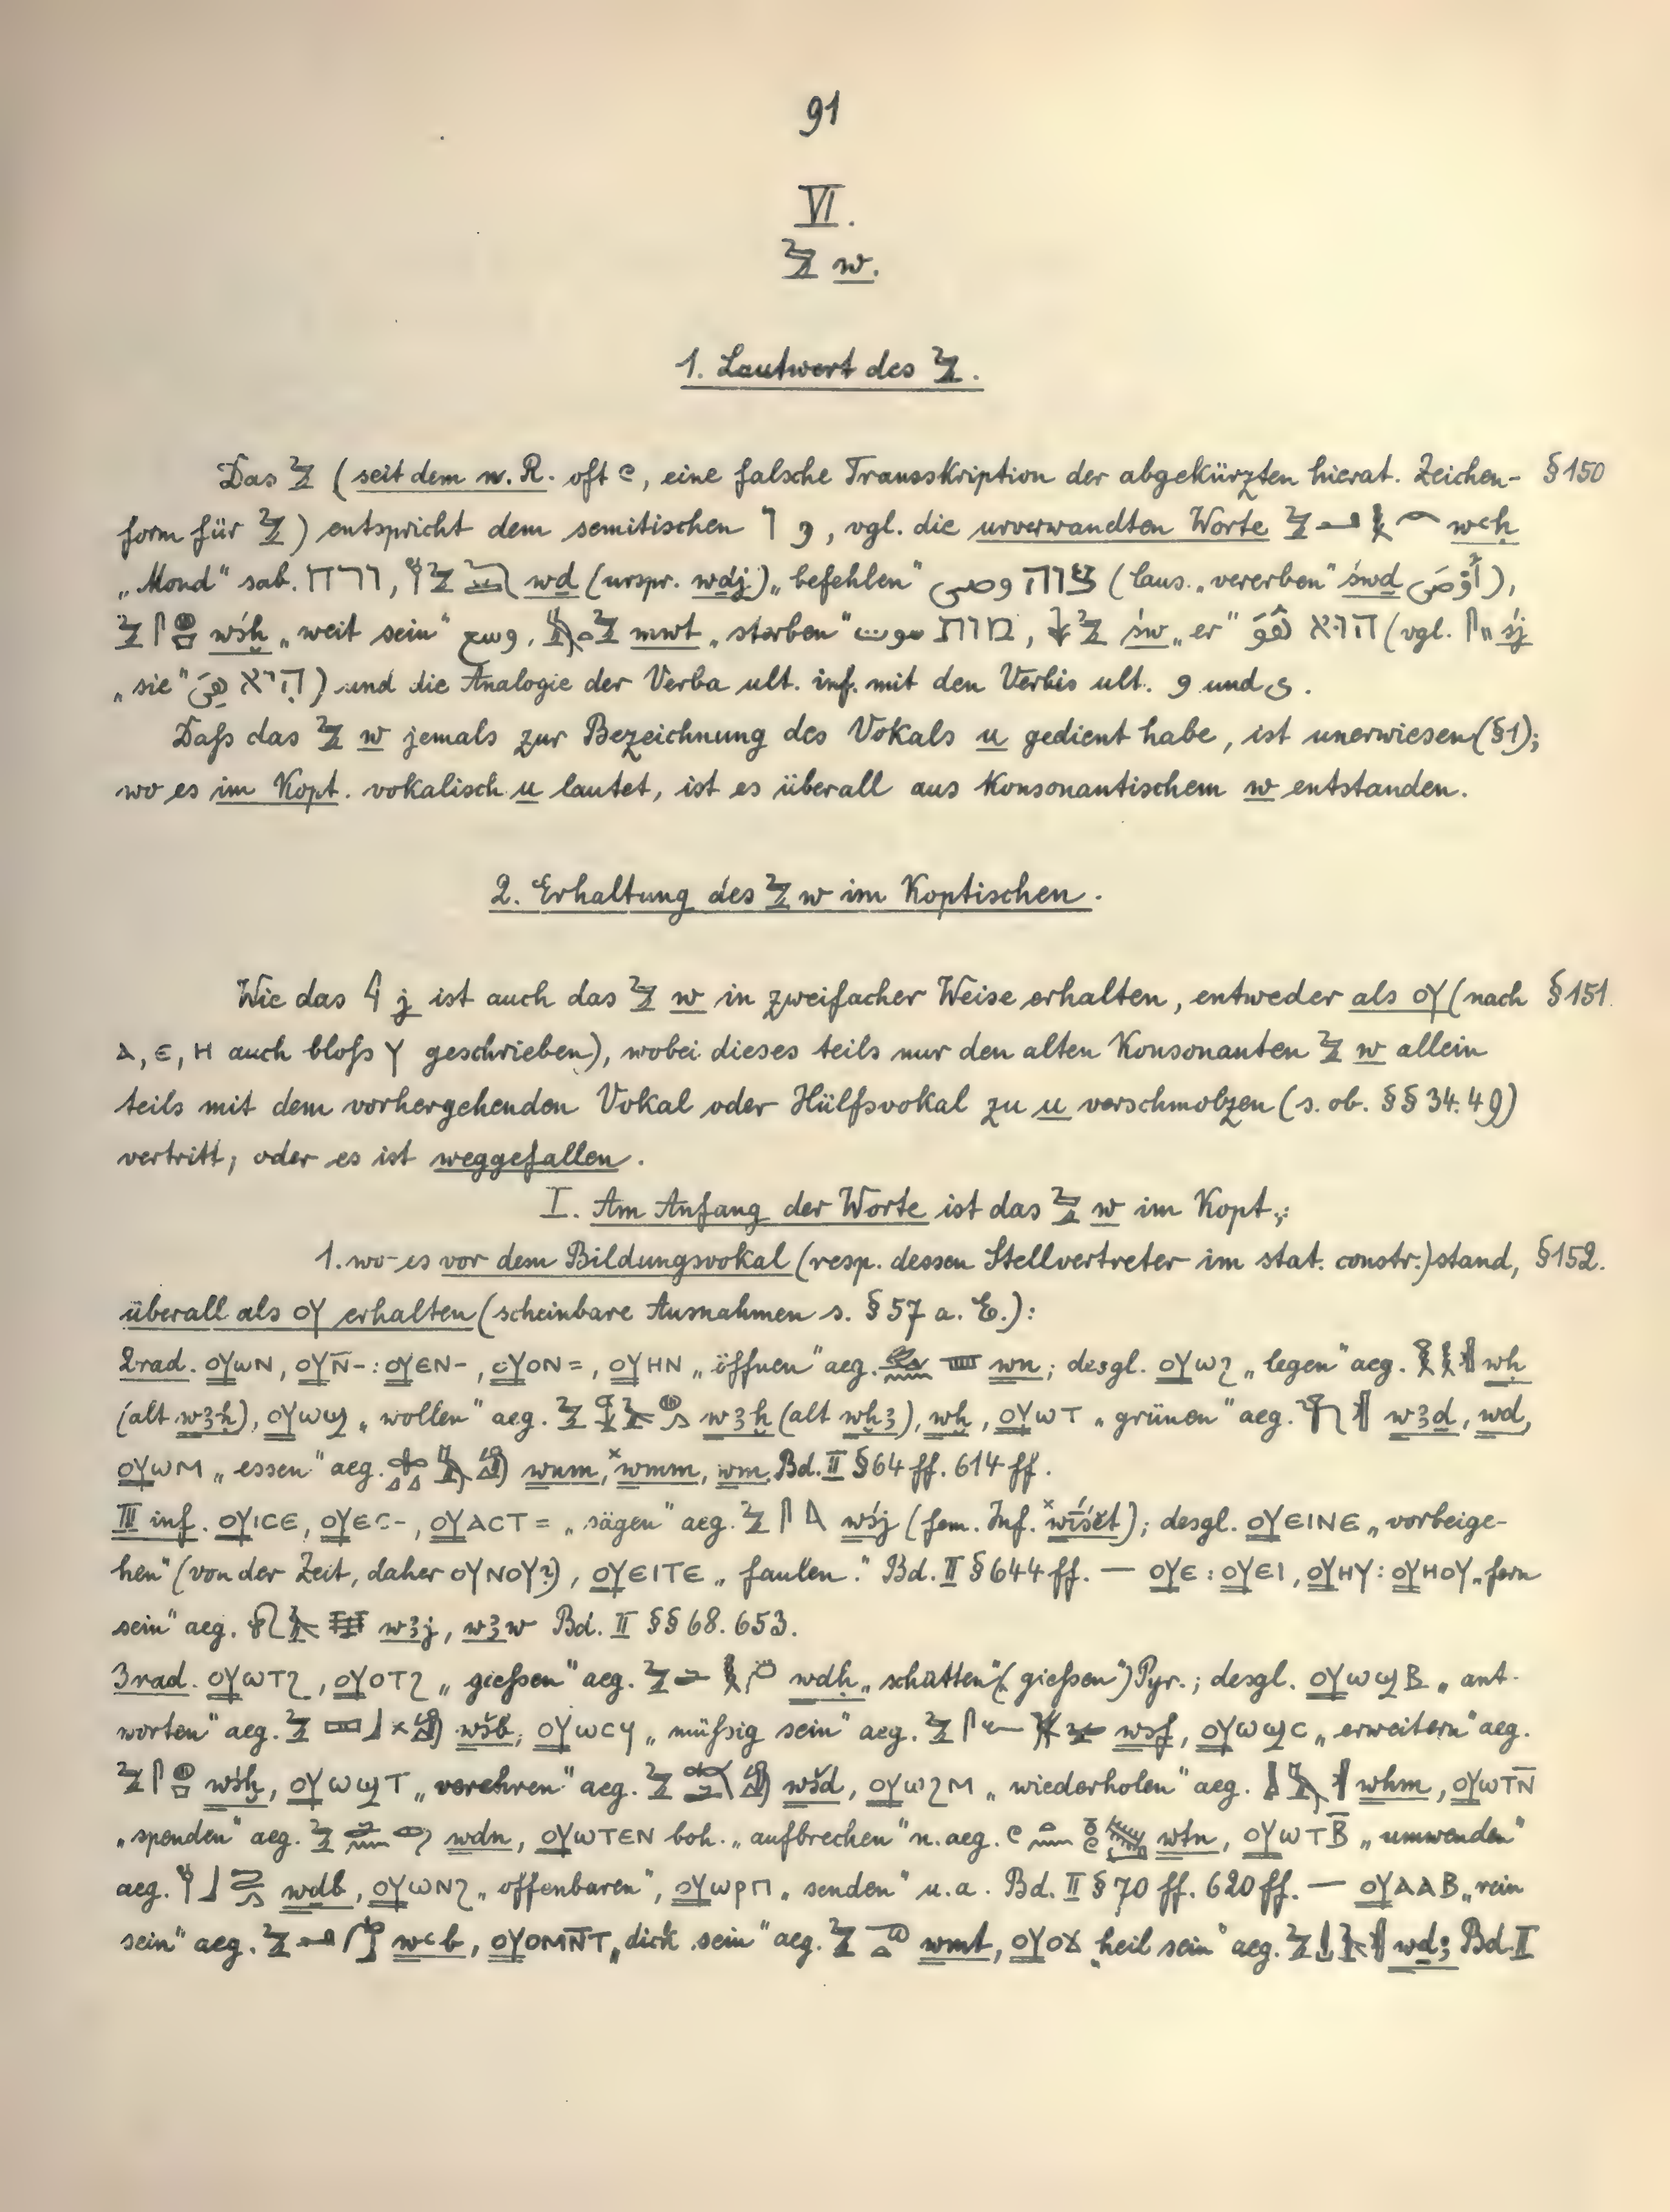 91
VI.
𓅱 w.
1. Lautwert des 𓅱.
Das 𓅱 (seit dem n. R. oft 𓏲, eine falsche Transskription der abgekürzten hierat. Zeichen- §150
form für 𓅱) entspricht dem semitischen ו و, vgl. die urverwandten Worte 𓅱 wꜥḥ
„Mond“ sab. ורח, wḏ (urspr. wḏj) „befehlen“ وصى צוה (kaus. „vererben“ śwḏ أوصى),
wśḫ „weit sein“ وسع, mwt „sterben“ موت מות, św „er“ הוא (vgl. śj
„sie“ היא) und die Analogie der Verba ult. inf. mit den Verbis ult. و und ى.
Daß das 𓅱 w jemals zur Bezeichnung des Vokals u gedient habe, ist unerwiesen (§1);
wo es im Kopt. vokalisch u lautet, ist es überall aus konsonantischem w entstanden.
2. Erhaltung des 𓅱 w im Koptischen.
Wie das 𓇋 j ist auch das 𓅱 w in zweifacher Weise erhalten, entweder als ⲟⲩ (nach §151.
ⲁ, ⲉ, ⲏ auch bloß ⲩ geschrieben), wobei dieses teils nur den alten Konsonanten 𓅱 w allein
teils mit dem vorhergehenden Vokal oder Hülfsvokal zu u verschmolzen (s. ob. §§ 34. 49)
vertritt, oder es ist weggefallen.
I. Am Anfang der Worte ist das 𓅱 w im Kopt.:
1. wo es vor dem Bildungsvokal (resp. dessen Stellvertreter im stat. constr.) stand, §152.
überall als ⲟⲩ erhalten (scheinbare Ausnahmen s. §57 a. E.):
2rad. ⲟⲩⲱⲛ, ⲟⲩⲛ̄-: ⲟⲩⲉⲛ-, ⲟⲩⲟⲛ=, ⲟⲩⲏⲛ „öffnen“ aeg. wn; desgl. ⲟⲩⲱϩ „legen“ aeg. wḥ
(alt wꜣḥ), ⲟⲩⲱϣ „wollen“ aeg. wꜣḫ (alt wḫꜣ), wḫ, ⲟⲩⲱⲧ „grünen“ aeg. wꜣd, wd,
ⲟⲩⲱⲙ „essen“ aeg. wnm, ˣwmm, wm. Bd. II §64 ff. 614 ff.
III inf. ⲟⲩⲓⲥⲉ, ⲟⲩⲉⲥ-, ⲟⲩⲁⲥⲧ= „sägen“ aeg. wśj (fem. Inf. ˣwíśĕt); desgl. ⲟⲩⲉⲓⲛⲉ „vorbeige-
hen“ (von der Zeit, daher ⲟⲩⲛⲟⲩ?), ⲟⲩⲉⲓⲧⲉ „faulen“. Bd. II §644 ff. — ⲟⲩⲉ: ⲟⲩⲉⲓ, ⲟⲩⲏⲩ: ⲟⲩⲏⲟⲩ „fern
sein“ aeg. wꜣj, wꜣw Bd. II §§ 68. 653.
3rad. ⲟⲩⲱⲧϩ, ⲟⲩⲟⲧϩ „gießen“ aeg. wdḥ „schütten“ („gießen“) Pyr.; desgl. ⲟⲩⲱϣⲃ „ant-
worten“ aeg. wšb, ⲟⲩⲱⲥϥ „müßig sein“ aeg. wsf, ⲟⲩⲱϣⲥ „erweitern“ aeg.
wśḫ, ⲟⲩⲱϣⲧ „verehren“ aeg. wšd, ⲟⲩⲱϩⲙ „wiederholen“ aeg. whm, ⲟⲩⲱⲧⲛ̄
„spenden“ aeg. wdn, ⲟⲩⲱⲧⲉⲛ boh. „aufbrechen“ n.aeg. wtn, ⲟⲩⲱⲧⲃ̄ „umwenden“
aeg. wdb, ⲟⲩⲱⲛϩ „offenbaren“, ⲟⲩⲱⲣⲡ „senden“ u.a. Bd. II §70 ff. 620 ff. — ⲟⲩⲁⲁⲃ „rein
sein“ aeg. wꜥb, ⲟⲩⲟⲙⲛ̄ⲧ „dick sein“ aeg. wmt, ⲟⲩⲟϫ „heil sein“ aeg. wḏꜣ Bd. I